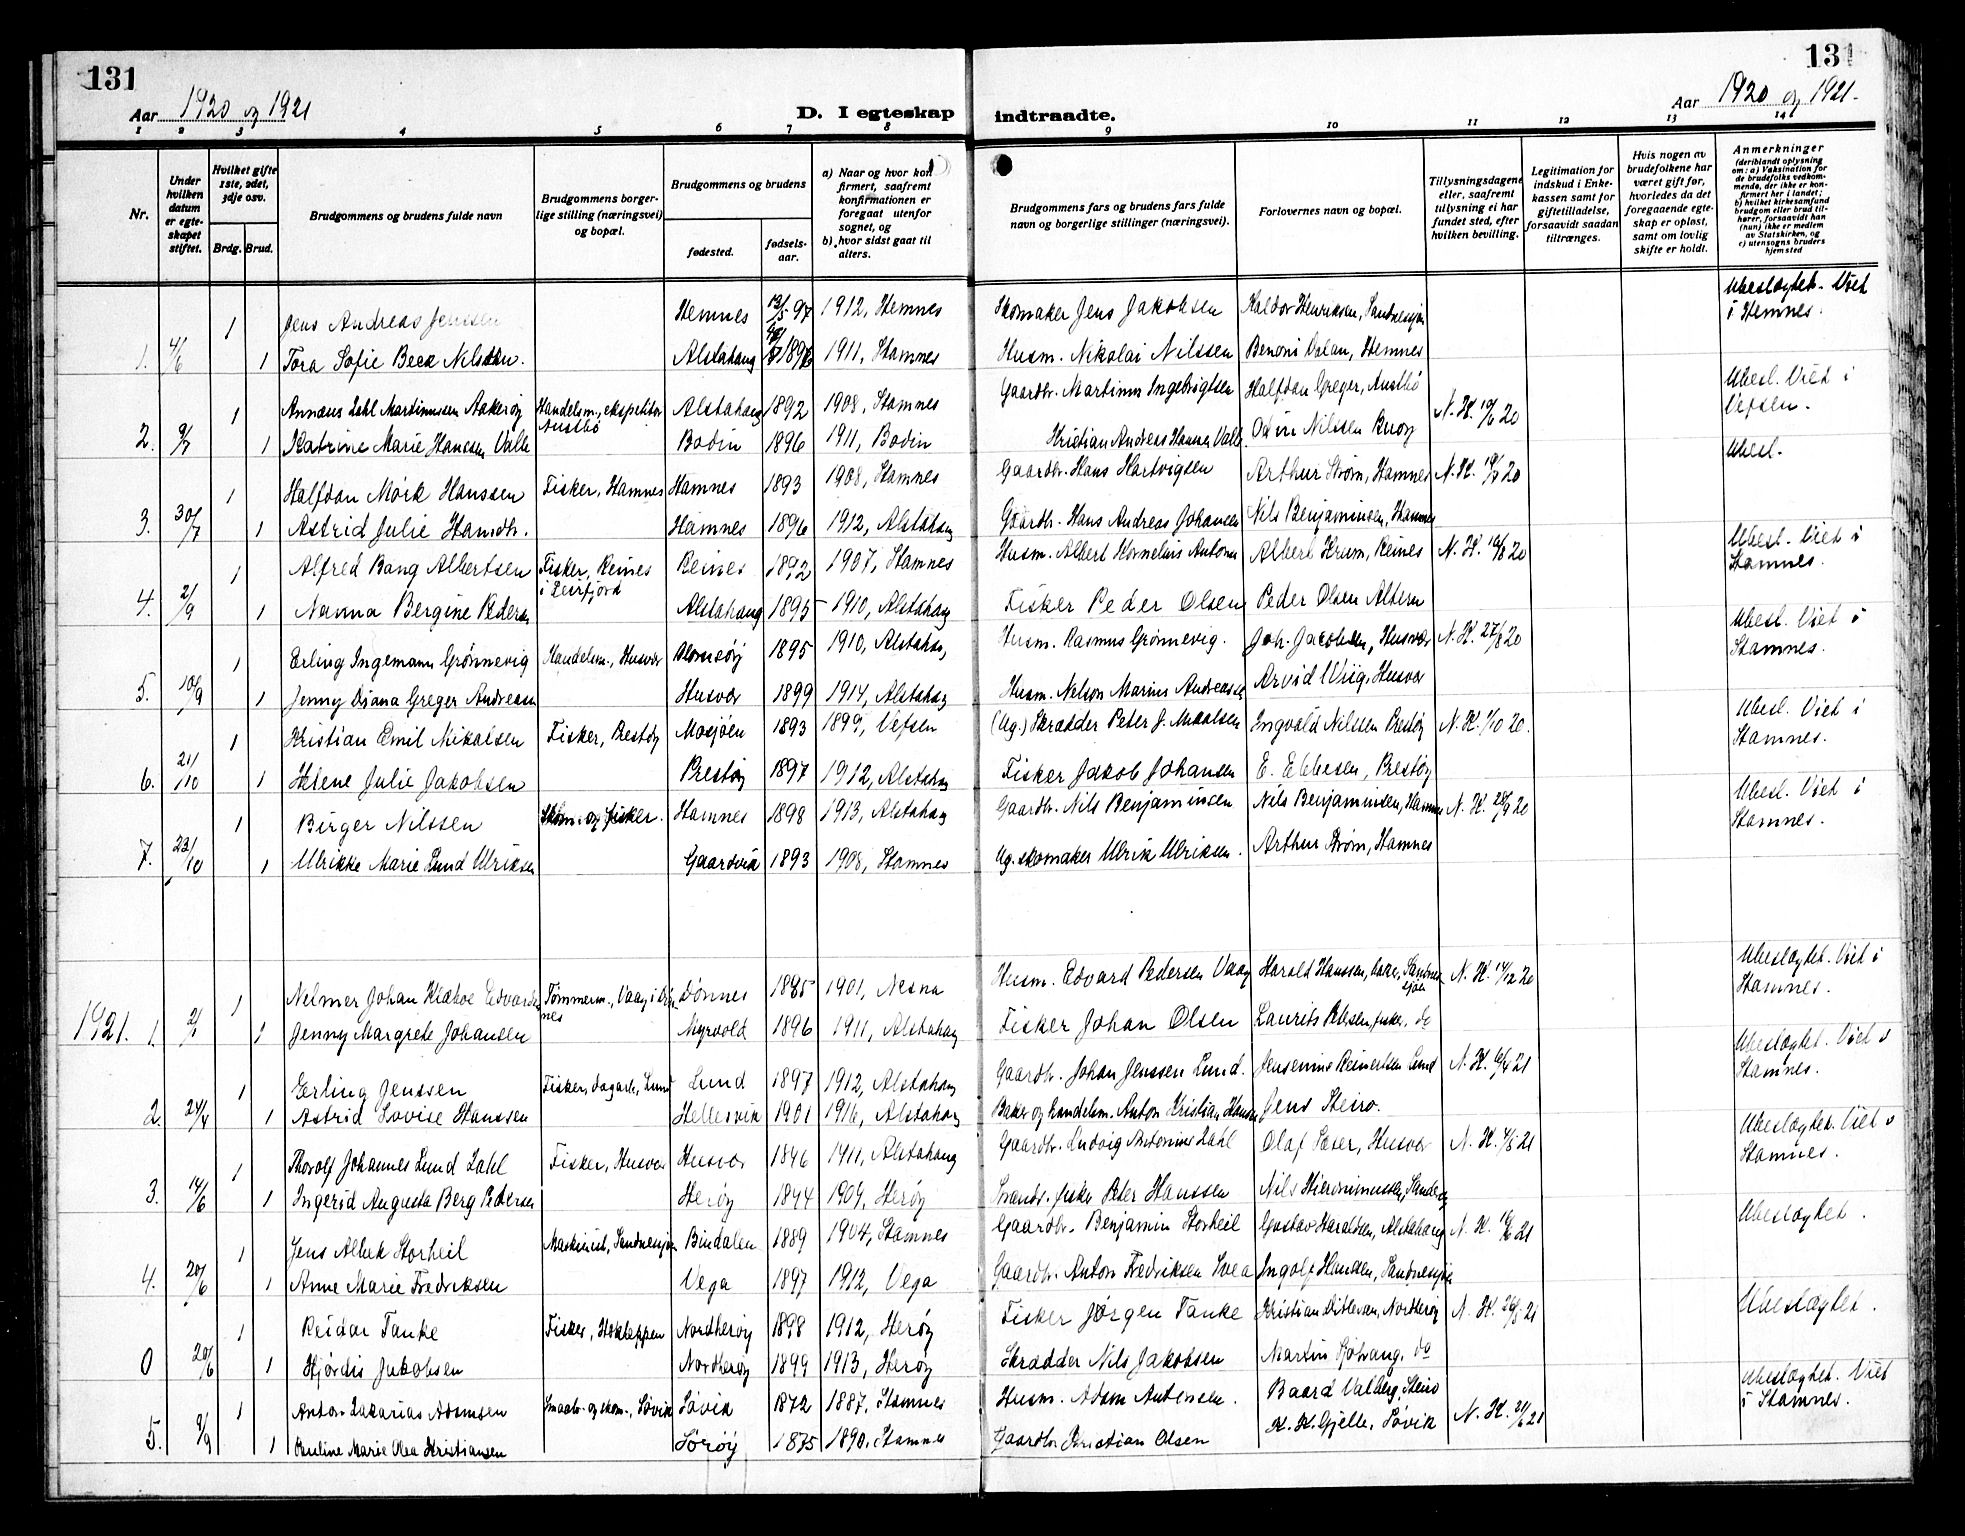 131
131
Aar 1920 og 1921
D. I egteskap indtraadte.
Aar 1920 og 1921.
1 2 3 4 5 6 7 8 9 10 11 12 13 14
Nr.
Under hvilken datum er egteskapet stiftet.
Hvilket gifte 1ste, 2det, 3dje osv.
Brdg. Brud.
Brudgommens og brudens fulde navn
Brudgommens borgerlige stilling (næringsvei) og bopæl.
Brudgommens og brudens
fødested.
fødselsaar.
a) Naar og hvor konfirmert, saafremt konfirmationen er foregaat utenfor sognet, og
b) hvor sidst gaat til alters.
Brudgommens fars og brudens fars fulde navn og borgerlige stillinger (næringsvei).
Forlovernes navn og bopæl.
Tillysningsdagene eller, saafremt tillysning ei har fundet sted, efter hvilken bevilling.
Legitimation for indskud i Enkekassen samt for giftetilladelse, forsaavidt saadan tiltrænges.
Hvis nogen av brudefolkene har været gift før, hvorledes da det foregaaende egteskap er opløst, samt om lovlig skifte er holdt.
Anmerkninger (deriblandt oplysning om: a) Vaksination for de brudefolks vedkommende, der ikke er konfirmert her i landet; b) hvilket kirkesamfund brudgom eller brud tilhører, forsaavidt han (hun) ikke er medlem av Statskirken, og c) utensogns bruders hjemsted
1 Jens Andreas Jenssen Hemnes 13/5 97 1912, Hemnes Skomaker Jens Jakobsen Haldor Henriksen, Sandnessjøen Ubeslægtet. Viet i Hemnes.
1. 4/6 1 Tora Sofie Beck Nilssen. Alstahaug 1911, Stamnes Husm. Nikolai Nilssen Benoni Dalan, Hemnes
1 Annæus Dahl Martinussen Aakerøy Handelsm., ekspeditør Austbø Alstahaug 1892 1908, Stamnes Gaardbr. Martinus Ingebrigtsen Halfdan Greger, Austbø N. K. 19/6 20 Ubesl. Viet i Vefsen.
2. 9/7 1 Katrine Marie Hanssen Valle Bodin 1896 1911, Bodin Kristian Andreas Hansen Valle Odin Nilssen
1 Halfdan Mörk Hanssen Fisker, Hamnes Hamnes 1893 1908, Stamnes Gaardbr. Hans Hartvigsen Arthur Strøm, Hamnes N. K. 20 Ubesl.
3. 30/7 1 Astrid Julie Hansdtr. Hamnes 1896 1912, Alstahaug Gaardbr. Hans Andreas Johansen Nils Benjaminsen, Hamnes
1 Alfred Bang Albertsen Fisker, Reines i Leirfjord Reines 1892 1907, Stamnes Husm. Albert Kornelius Antons Albert Krum, Reines N. K. 20 Ubesl. Viet i Stamnes.
4. 2/9 1 Nanna Bergine Peders Alstahaug 1895 1910, Alstahaug Fisker Peder Olsen Peder Olsen Altern
1 Erling Ingemann Grönnevig Handelsm., Husvær 1895 1910, Alstahaug Husm. Rasmus Grønnevig. Joh. Jacobsen, Husvær N. K. 27/8 20 Ubesl. Viet i Stamnes.
5. 10/9 1 Jenny Diana Greger Andreasen Husvær 1899 1914, Alstahaug Husm. Nelson Marius Andreassen Arvid Wiig, Husvær
1 Kristian Emil Nikolsen Fisker, Prestøy Mosjøen 1893 1899, Vefsen (Ug.) Skrædder Peter J. Ingvald Nilssen Prestøy N. K. 1/10 20. Ubesl. Viet i Stamnes.
6. 21/10 1 Helene Julie Jakobsen Prestøy 1897 1912, Alstahaug Fisker Jakob Johansen E. Ebbesen, Prestøy
1 Birger Nilssen Skom. og fisker. Hamnes 1898 1913, Alstahaug Gaardbr. Nils Benjaminsen Nils Benjaminsen, Hamnes N. K. 28/9 20 Ubesl. Viet i Stamnes.
7. 23/10 1 Ulrikke Marie Lund Ulriksen Gaardvik 1893 1908, Stamnes Ug. skomaker Ulrik Ulriksen. Arthur Strøm, Hamnes
1 Nelmer Johan Edvards Tömmerm., Vaag i Dönnes Dönnes 1885 1901, Nesna Husm. Edvard Pedersen Vaag Harold Hanssen, Sandnessjøen N. K. 14/12 20 Ubeslægtet. Viet i Stamnes.
1921. 1. 2/1 1 Jenny Margrete Johansen Myrvold 1896 1911, Alstahaug Fisker Johan Olsen Laurits Olsen, fisker, do
1 Erling Jenssen Fisker, Lund Lund 1897 1912, Alstahaug Gaardbr. Johan Jenssen Lund. Jensenius Reinertsen Lund N. K. 21 Ubeslægtet. Viet i Stamnes.
2. 24/4 1 Astrid Lovise Hanssen Hellesvik 1901 1916, Alstahaug Baker og handelsm. Anton Kristian Hansen Jens Steiro.
1 Thorolf Johannes Lund Dahl Fisker, Husvær Husvær 1896 1911, Alstahaug Gaardbr. Ludvig Antonius Dahl Olaf Husvær N. K. 21 Ubeslægtet. Viet i Stamnes.
3. 14/6 1 Ingerid Augusta Berg Pedersen Herøy 1894 1909, Herøy fisker Peter Hanssen Nils Hieronimussen,
1 Jens Albuk Storheil Maskinist, Sandnessjøen Bindalen 1889 1904, Stamnes Gaardbr. Benjamin Storheil Gustav Haraldsen, Alstahaug N. K. 21 Ubeslægtet.
4. 20/6 1 Anne Marie Fredriksen Vega 1897 1912, Vega Gaardbr. Anton Fredriksen Svea Ingolf Hansen, Sandnessjøen
1 Reidar Tanke Fisker, Nordherøy 1898 1912, Herøy Fisker Jørgen Tanke Kristian Ditlevsen, Nordherøy N. K. 26/5 21 Ubeslægtet.
0 20/6 1 Hjördis Jakobsen Nordherøy 1899 1913, Herøy Skrædder Nils Jakobsen Martin Sjøvang, do
1 Anton Zakarias Adamsen Smaabr. og skom., Søvik Søvik 1872 1887, Stamnes Husm. Adam Antonsen. Baard Valberg, Steiro N. K. 21/6 21 Ubeslægtet. Viet i Stamnes.
5. 9/9 1 Pauline Marie Olea Kristiansen Sørøy 1875 1890, Stamnes Gaardbr. Kristian Olsen K. K. Gjelle, Søvik